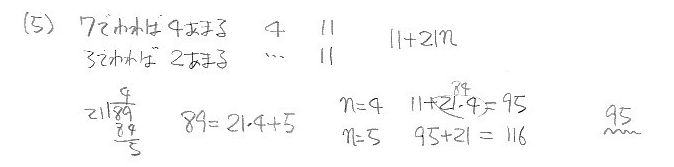 (5) 7でわれば4あまる 4 11 11+21n
3でわれば2あまる … 11
4
21)89 89=21・4+5 n=4 11+21・4=95 84
84 n=5 95+21=116 95
5